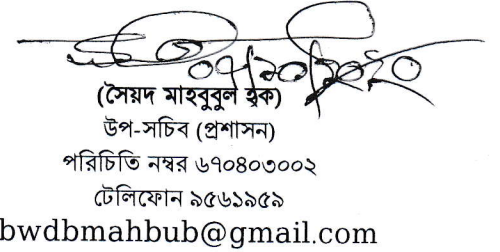 ০৭/১০/২০২০
(সৈয়দ মাহবুবুল হক)
উপ-সচিব (প্রশাসন)
পরিচিতি নম্বর ৬৭০৪০৩০০২
টেলিফোন ৯৫৬১৯৫৯
bwdbmahbub@gmail.com